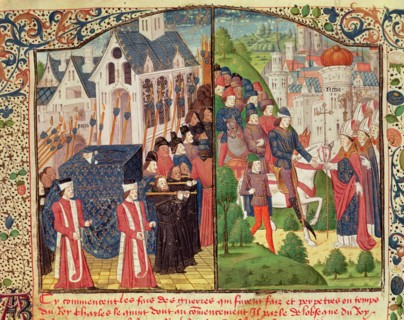 Cy commencent les fais des guerres qui furent fais et perpetres ou temps
du Roy Charles le quint dont au commencement Il parle de lobseque du Roy